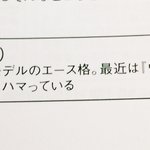 )
デルのエース格。最近は『
ハマっている